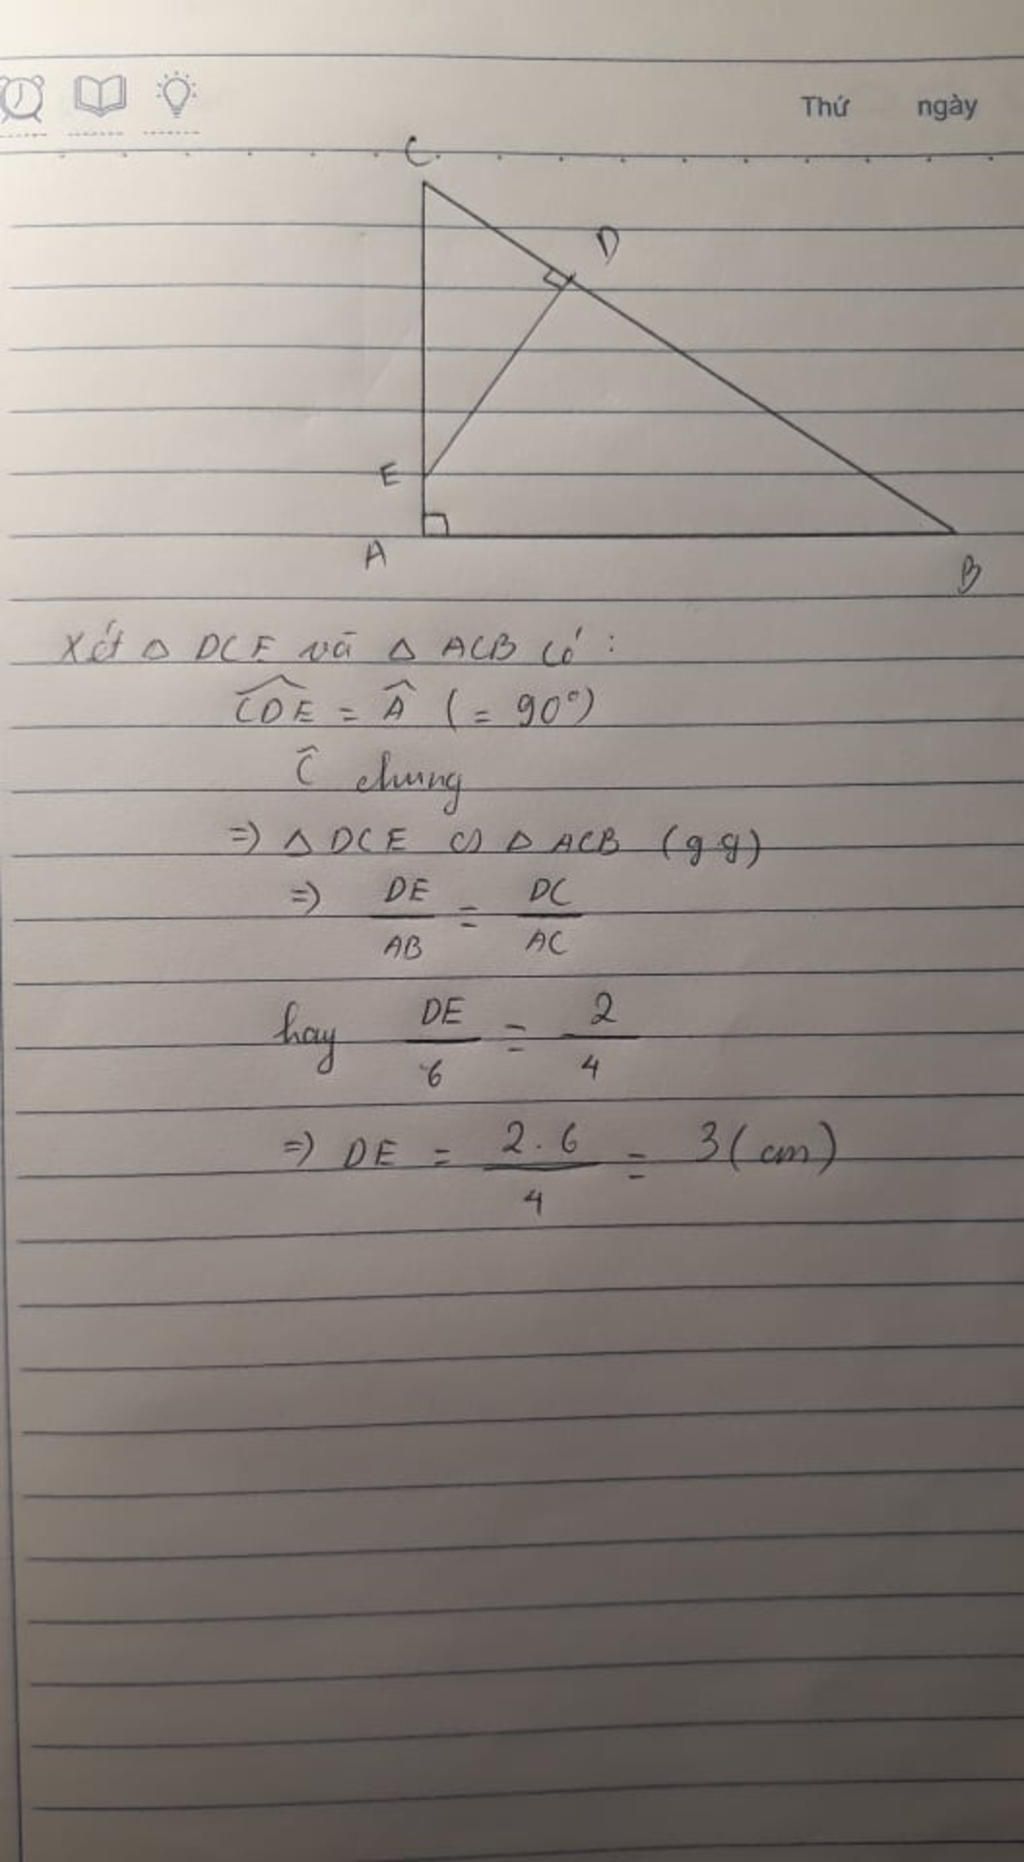 Thứ ngày
C
D
E
A
B
Xét △ DCE và △ ACB có :
$\widehat{CDE} = \widehat{A}$ (= 90°)
$\widehat{C}$ chung
=> △ DCE ∽ △ ACB (g.g)
=> $\frac{DE}{AB} = \frac{DC}{AC}$
hay $\frac{DE}{6} = \frac{2}{4}$
=> DE = $\frac{2 . 6}{4}$ = 3 (cm)